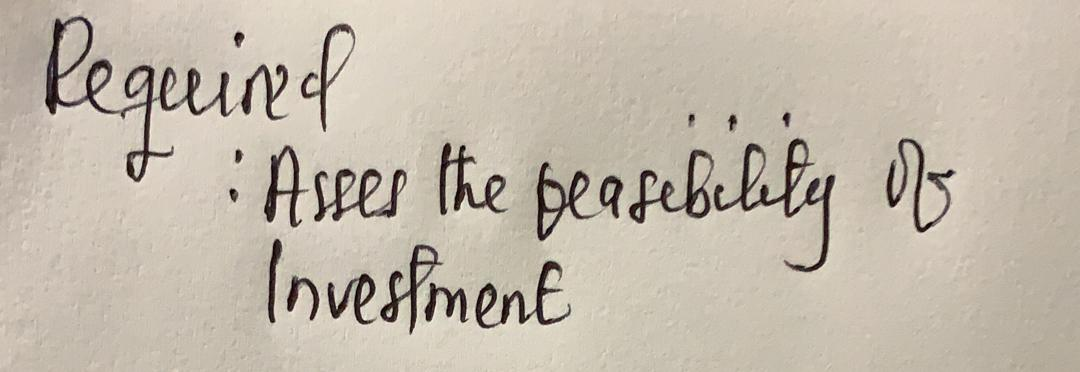 Required
: Asses the feasibility of
Investment